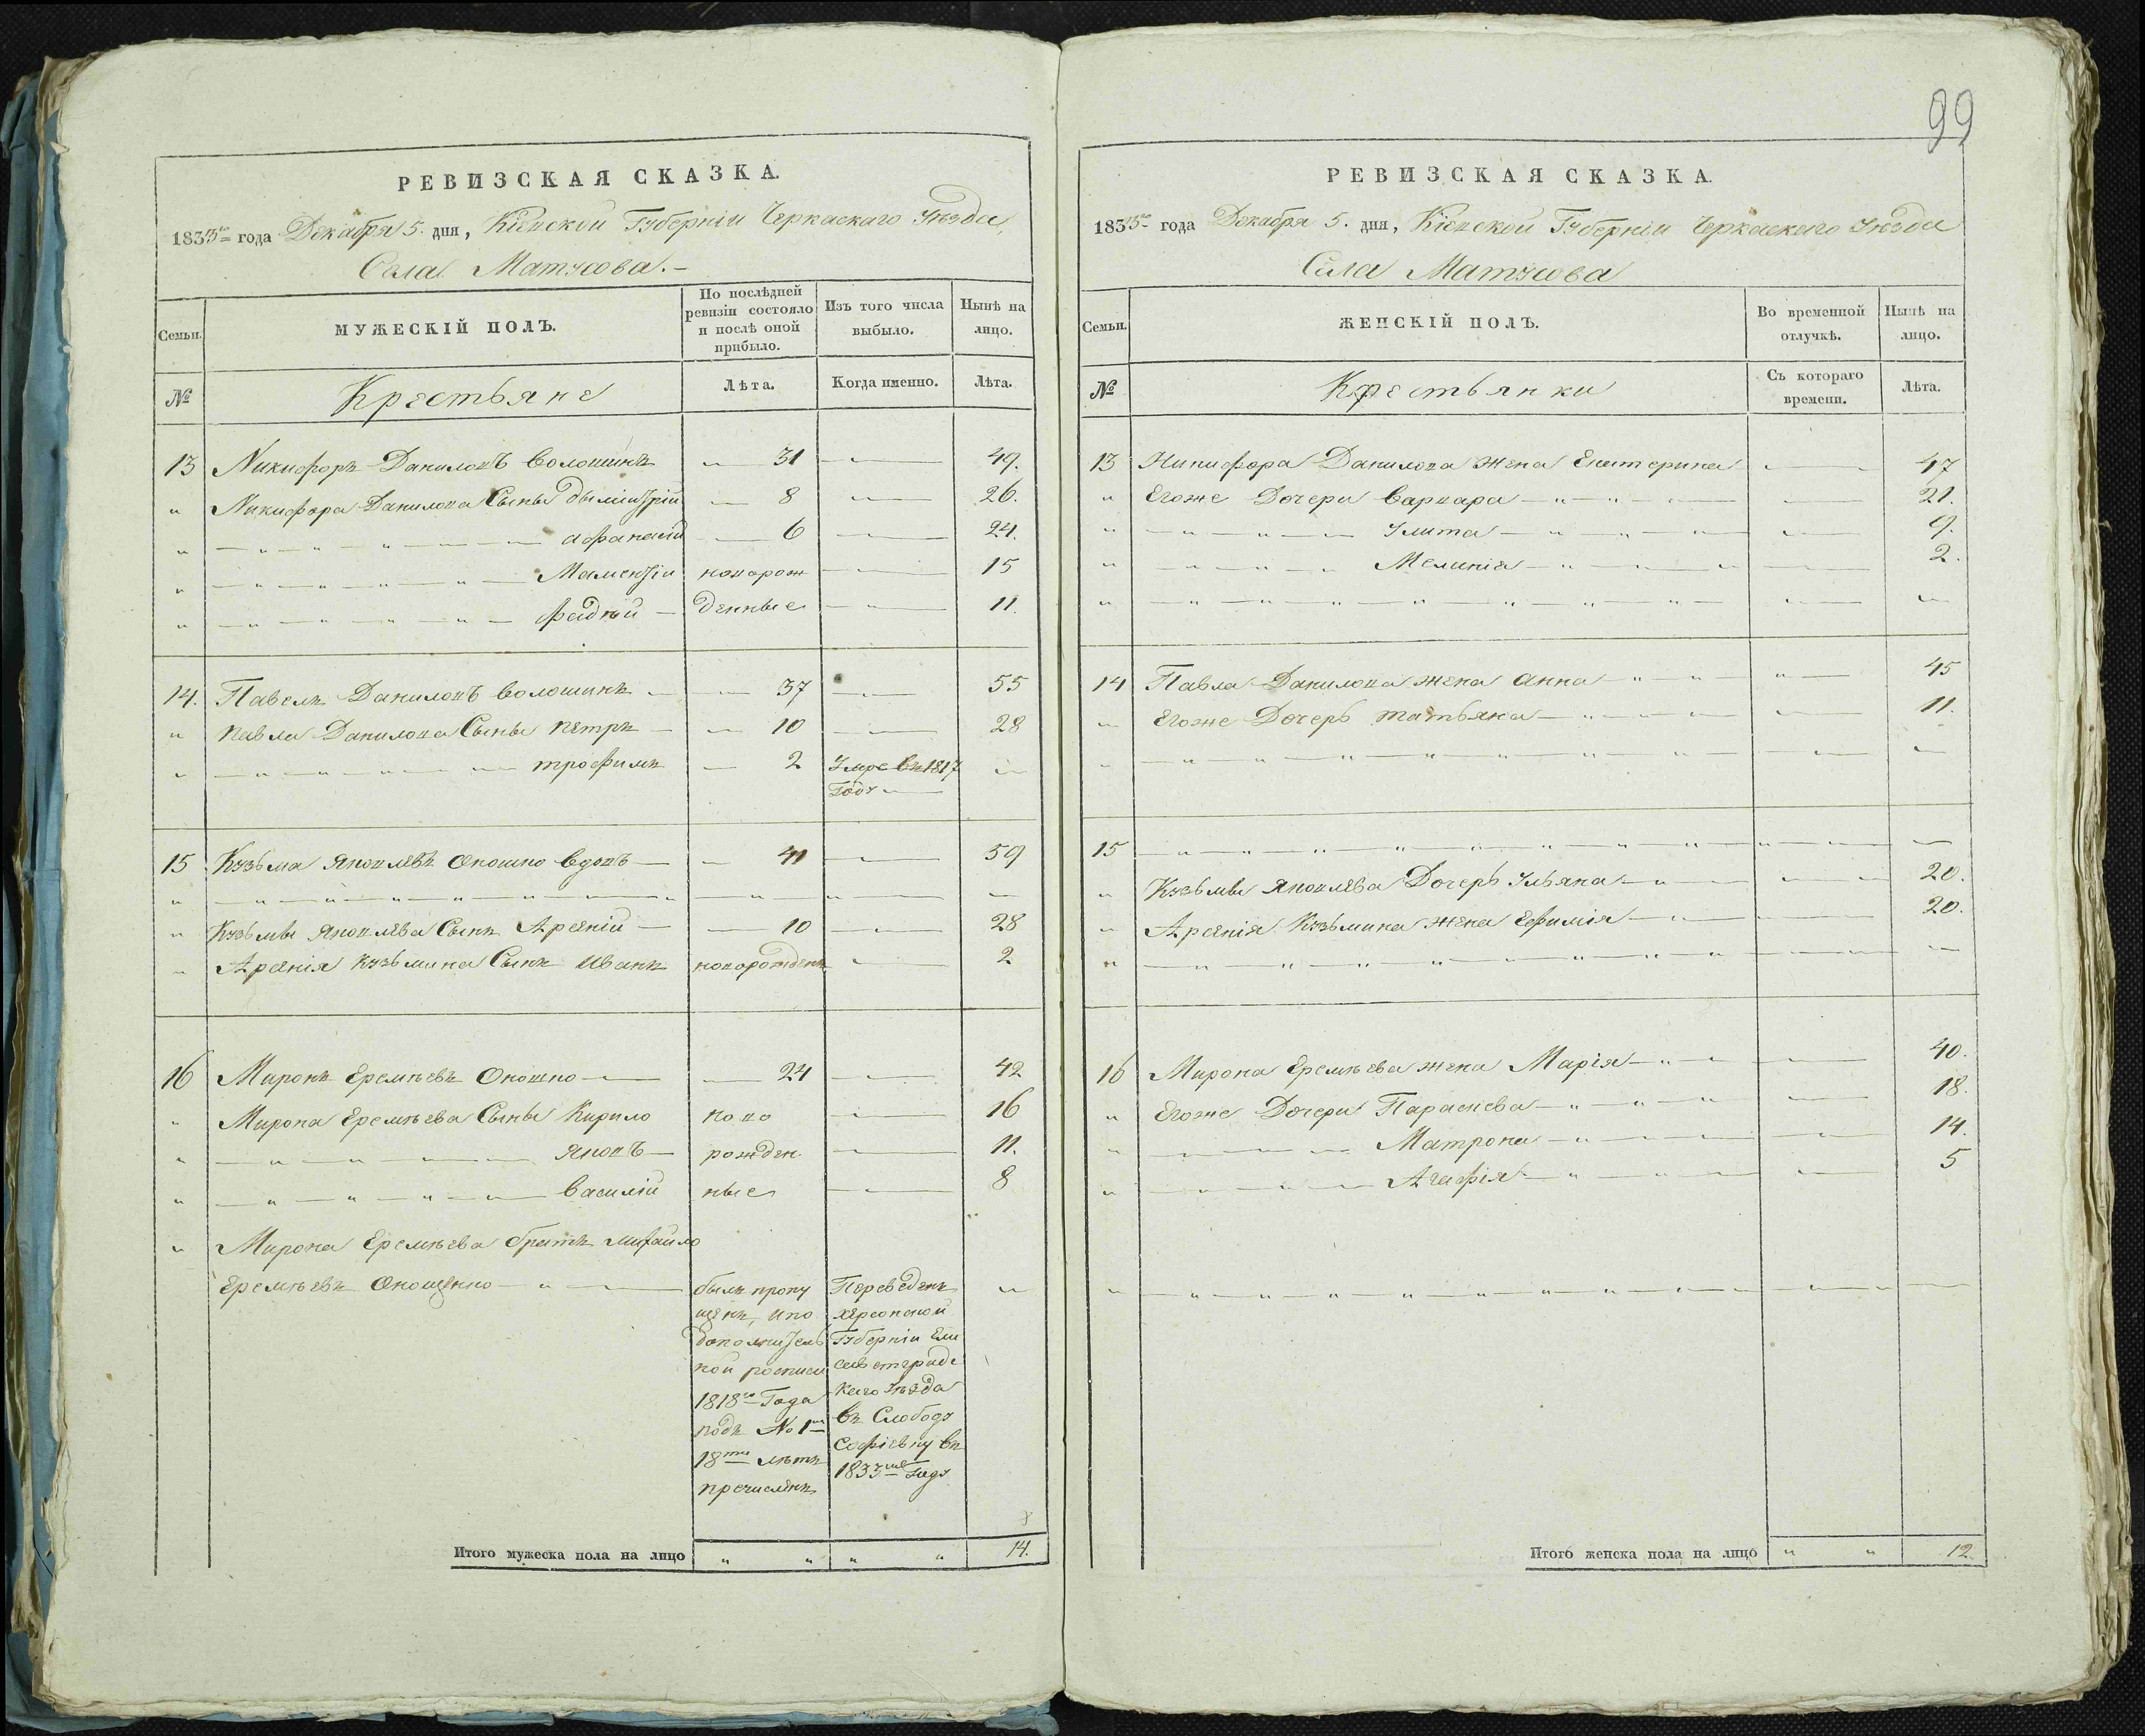 99
РЕВИЗСКАЯ СКАЗКА.
1835го года Декабря 5. дня, Кіевской Губерніи Черкаскаго Уѣзда,
Села Матусова.
Семьи.
МУЖЕСКІЙ ПОЛЪ.
По послѣдней ревизіи состояло и послѣ оной прибыло.
Изъ того числа выбыло.
Нынѣ на лицо.
№
Крестьяне
Лѣта.
Когда именно.
Лѣта.
13 Никифоръ Даниловъ Волошинъ 31 49.
Никифора Данилова Сыны Дымитрій 8 26.
Афанасій 6 24.
новорож 15
Фадѣй денные 11.
14. Павелъ Даниловъ Волошинъ 37 55
Павла Данилова Сыны Петръ 10 28
трофимъ 2 Умре въ 1817
Году
15 Кузьма Яковлевъ Оношко вдовъ 41 59
Кузьмы Яковлева Сынъ Арсеній 10 28
Арсенія Кузьмина Сынъ Иванъ новорожденъ 2
16 Миронъ Еремѣевъ Оношко 24 42
Мирона Еремѣева Сыны Кирило ново 16
Яковъ рожден 11.
Василій ные 8
Мирона Еремѣева братъ Михайло
Еремѣевъ
былъ пропу
щенъ, и по
дополнитель
ной росписи
1818го Года
подъ № 1м
18ти лѣтъ
причисленъ
Переведенъ
Херсонской
Губерніи Ели
саветградс
каго Уѣзда
въ Слободу
Софіевку въ
1833мъ Году
Итого мужеска пола на лицо 14.
РЕВИЗСКАЯ СКАЗКА.
1835го года Декабря 5. дня, Кіевской Губерніи Черкаскаго Уѣзда
Села Матусова
Семьи.
ЖЕНСКІЙ ПОЛЪ.
Во временной отлучкѣ.
Нынѣ на лицо.
№
Крестьянки
Съ котораго времени.
Лѣта.
13 Никифора Данилова жена Екатерина 47
Егоже Дочери Варвара 21.
Улита 9.
Меланія 2.
14 Павла Данилова жена Анна 45
Егоже Дочерь татьяна 11.
15
Кузьмы Яковлева Дочерь Ульяна 20.
Арсенія Кузьмина жена Ефимія 20.
16 Мирона Еремѣева жена Марія 40.
Егоже Дочери Параскева 18.
Матрона 14.
Агафія 5
Итого женска пола на лицо 12.